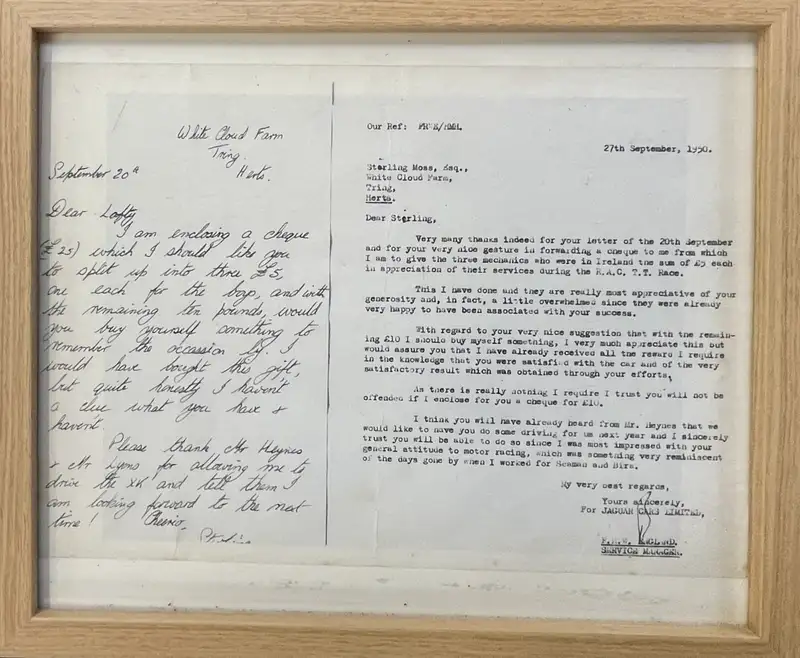 White Cloud Farm
Tring.
Herts.
September 20th
Dear Lofty
I am enclosing a cheque
(£25) which I should like you
to split up into three £5,
one each for the boys, and with
the remaining ten pounds, would
you buy yourself something to
remember the occassion by. I
would have bought this gift,
but quite honestly I haven't
a clue what you have &
haven't.
Please thank Mr Heynes
& Mr Lyons for allowing me to
drive the XK and tell them I
am looking forward to the next
time! Cheerio,
Our Ref: FRWE/MMM.
27th September, 1950.
Sterling Moss, Esq.,
White Cloud Farm,
Tring,
Herts.
Dear Sterling,
Very many thanks indeed for your letter of the 20th September
and for your very nice gesture in forwarding a cheque to me from which
I am to give the three mechanics who were in Ireland the sum of £5 each
in appreciation of their services during the R.A.C. T.T. Race.
This I have done and they are really most appreciative of your
generosity and, in fact, a little overwhelmed since they were already
very happy to have been associated with your success.
With regard to your very nice suggestion that with the remain-
ing £10 I should buy myself something, I very much appreciate this but
would assure you that I have already received all the reward I require
in the knowledge that you were satisfied with the car and of the very
satisfactory result which was obtained through your efforts.
As there is really nothing I require I trust you will not be
offended if I enclose for you a cheque for £10.
I think you will have already heard from Mr. Heynes that we
would like to have you do some driving for us next year and I sincerely
trust you will be able to do so since I was most impressed with your
general attitude to motor racing, which was something very reminiscent
of the days gone by when I worked for Seaman and Bira.
My very best regards,
Yours sincerely,
For JAGUAR CARS LIMITED,
F.R.W. ENGLAND.
SERVICE MANAGER.